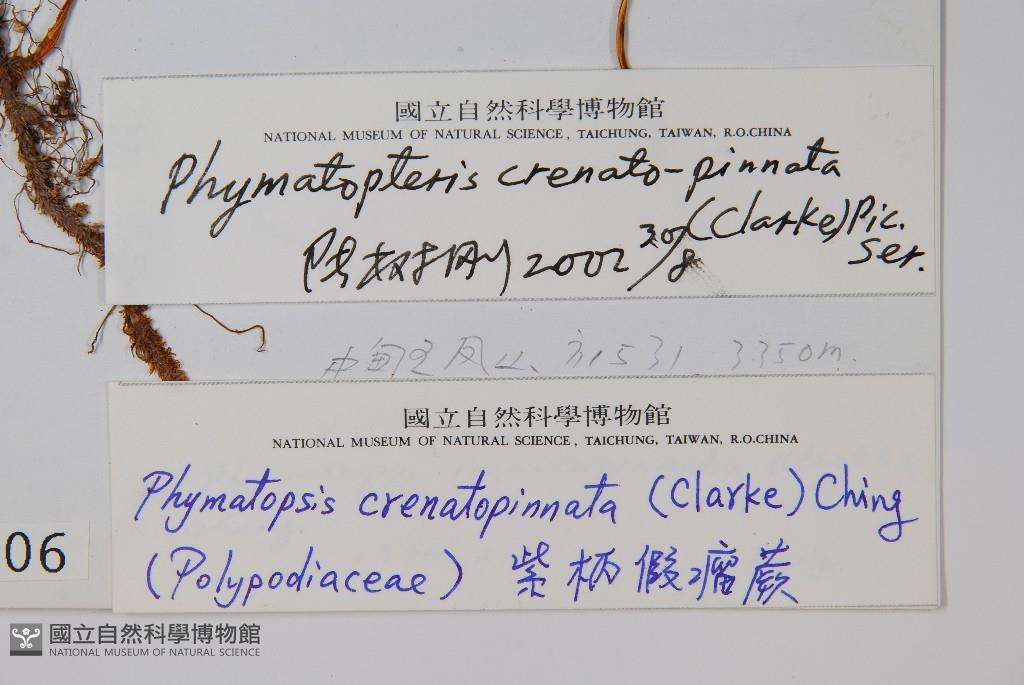 國立自然科學博物館
NATIONAL MUSEUM OF NATURAL SCIENCE, TAICHUNG, TAIWAN, R.O.CHINA
Phymatopteris crenato-pinnata
(Clarke) Pic. Ser.
2002 30/8
31531 3350m.
國立自然科學博物館
NATIONAL MUSEUM OF NATURAL SCIENCE, TAICHUNG, TAIWAN, R.O.CHINA
Phymatopsis crenatopinnata (Clarke) Ching
(Polypodiaceae) 紫柄假瘤蕨
06
國立自然科學博物館
NATIONAL MUSEUM OF NATURAL SCIENCE